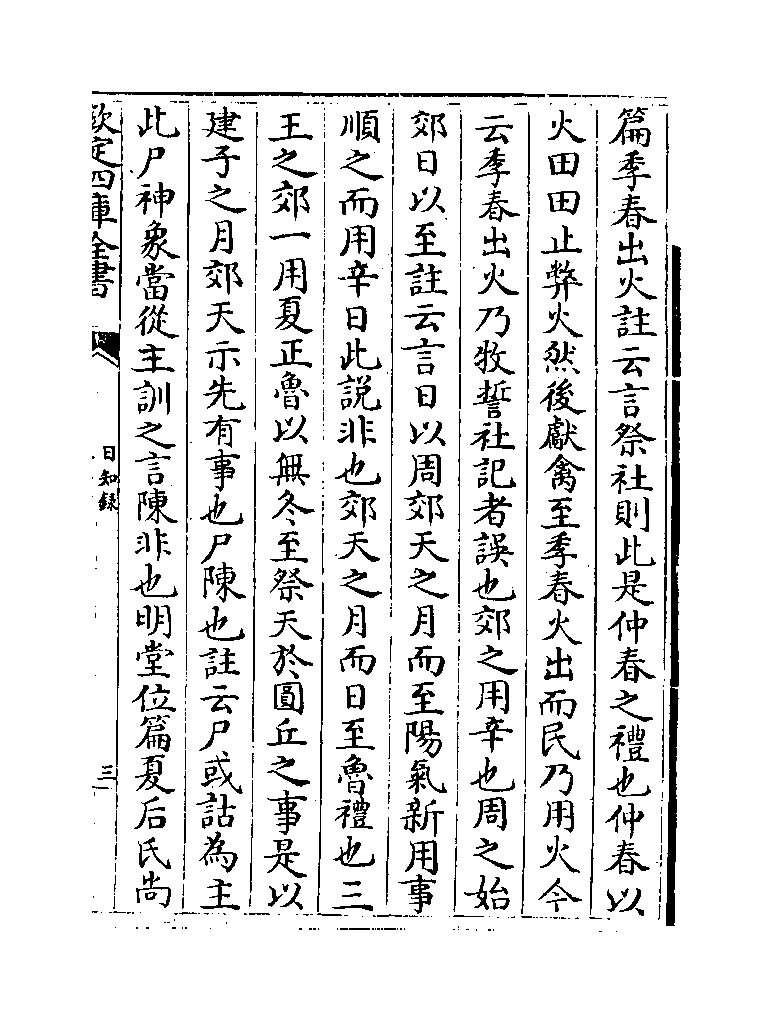 篇季春出火註云言祭社則此是仲春之禮也仲春以
火田田止弊火然後獻禽至季春火出而民乃用火今
云季春出火乃牧誓社記者誤也郊之用辛也周之始
郊日以至註云言日以周郊天之月而至陽氣新用事
順之而用辛日此説非也郊天之月而日至魯禮也三
王之郊一用夏正魯以無冬至祭天於圓丘之事是以
建子之月郊天示先有事也尸陳也註云尸或詁為主
此尸神象當從主訓之言陳非也明堂位篇夏后氏尚
欽定四庫全書
日知録
三